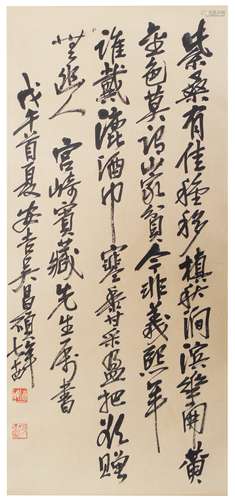 柴桑有佳種移植秋澗濱開黃
金色莫謂山家貧今非義熙年
誰戴漉酒巾寒香采盈把欲贈
無幽人 宮崎寶藏先生屬書
戊午首夏安吉吳昌碩年七十五